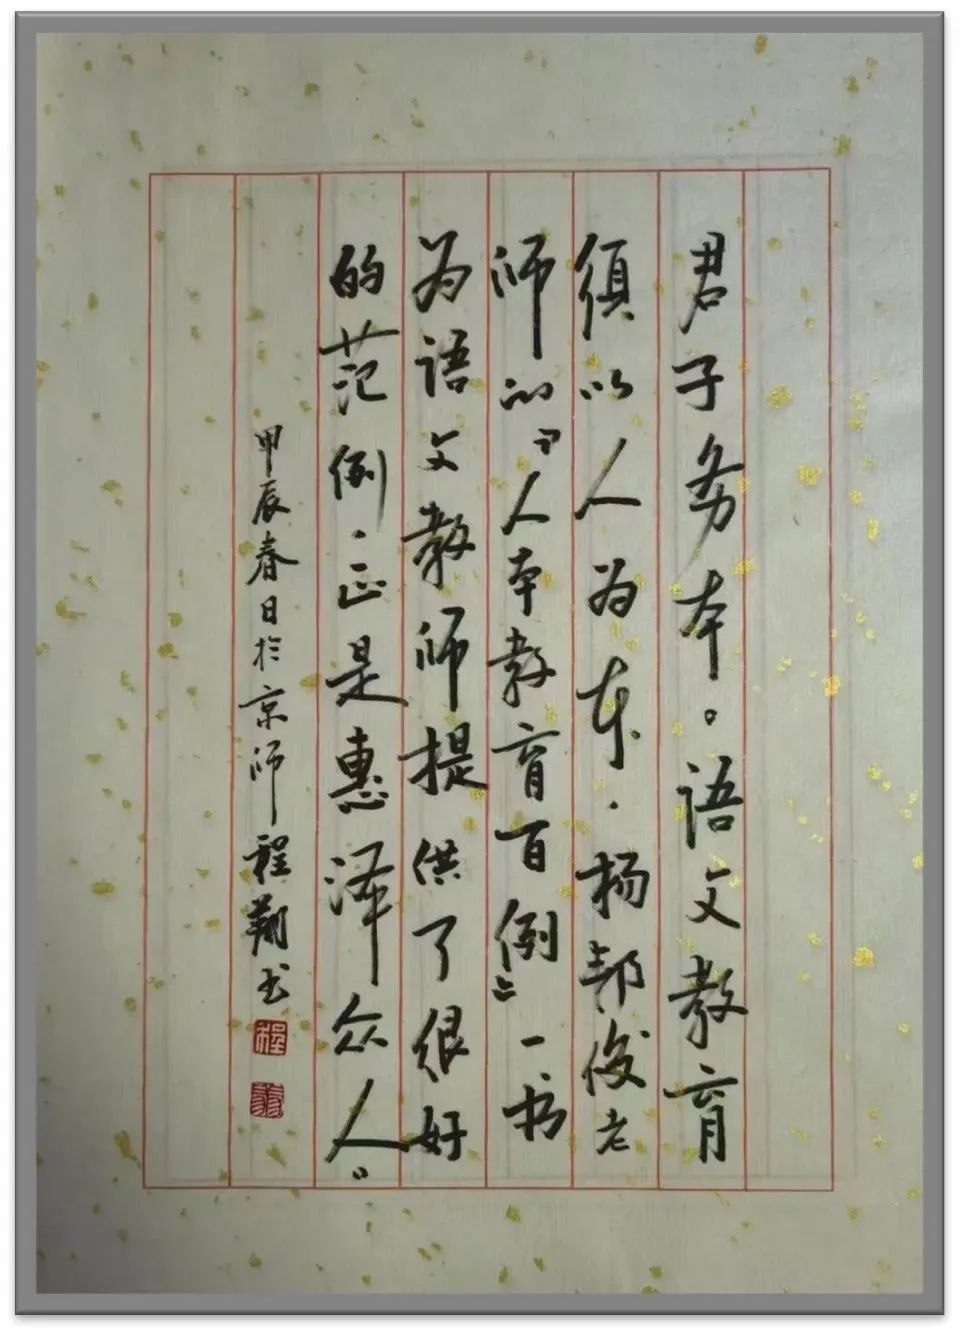 君子务本。语文教育
须以人为本，杨邦俊老
师的《人本教育百例》一书
为语文教师提供了很好
的范例，正是惠泽众人。
甲辰春日於京师程翔书
程
翔